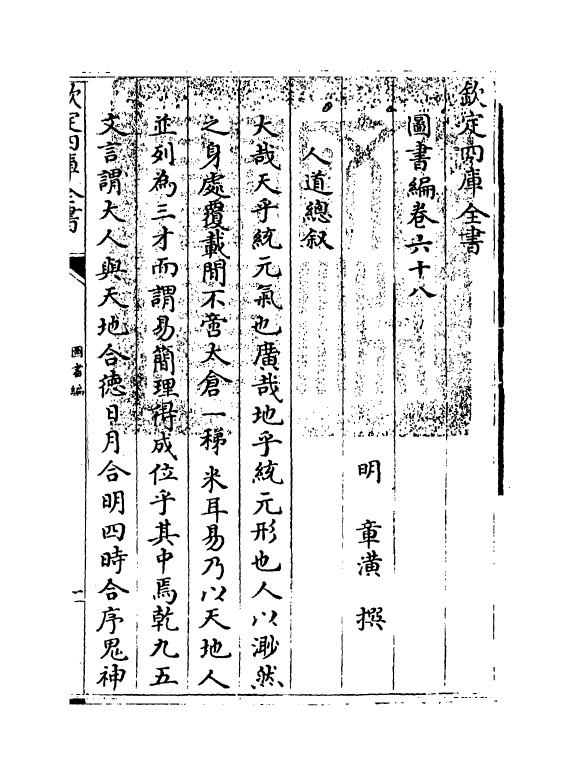 欽定四庫全書
圖書編卷六十八
明 章潢 撰
人道總叙
大哉天乎統元氣也廣哉地乎統元形也人以渺然
之身處覆載間不啻太倉一稊米耳易乃以天地人
並列為三才而謂易簡理得成位乎其中焉乾九五
文言謂大人與天地合徳日月合明四時合序鬼神
欽定四庫全書
圖書編
一